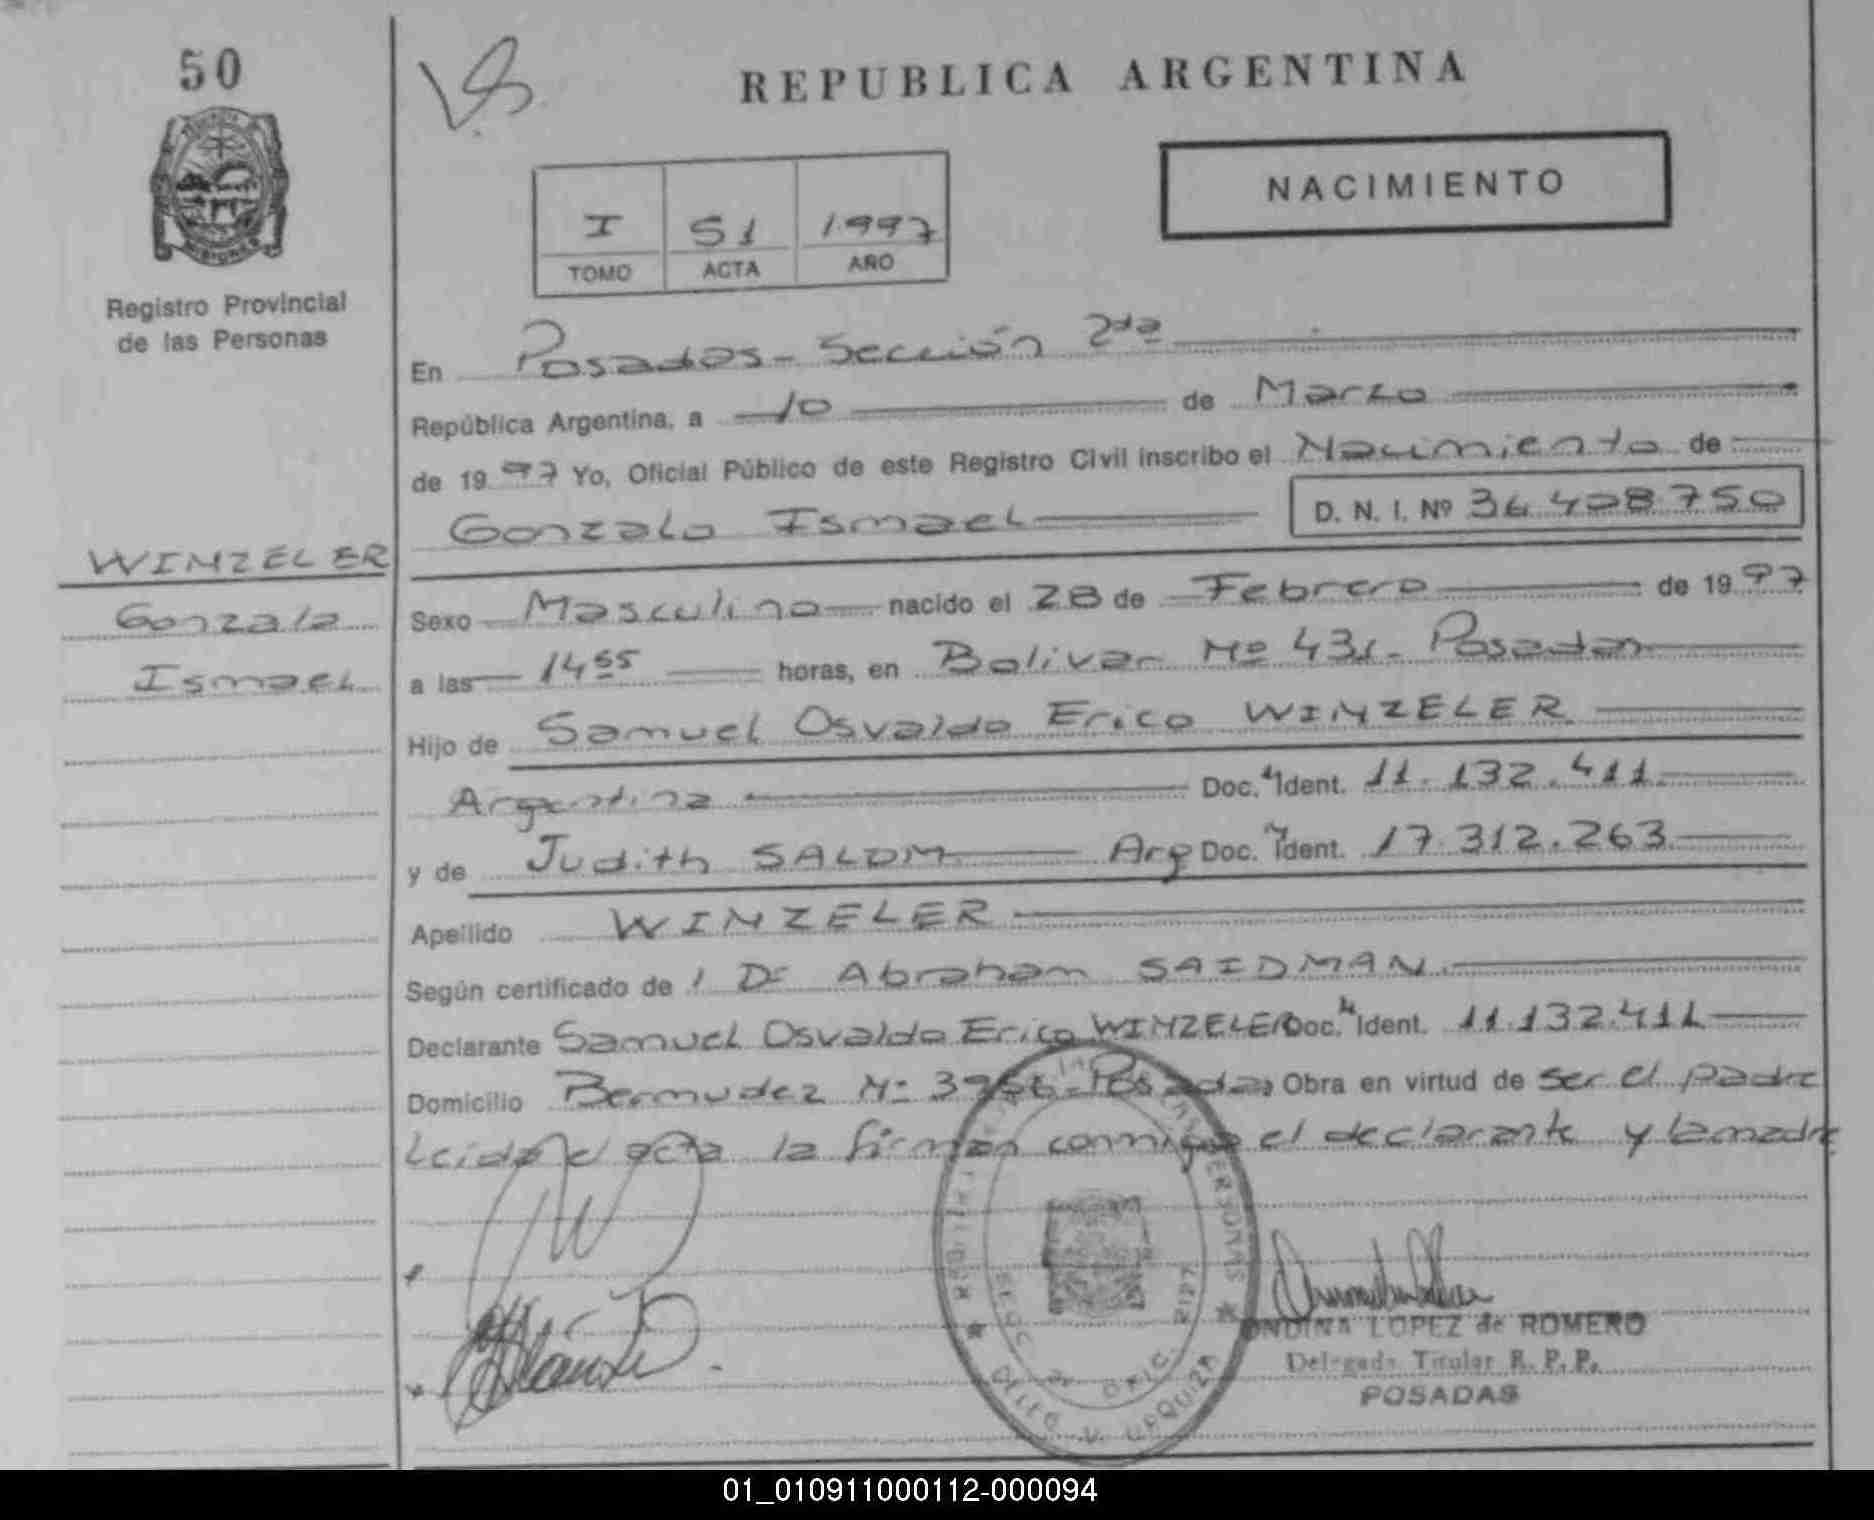 50
REPUBLICA ARGENTINA
NACIMIENTO
I 51 1.997
TOMO ACTA AÑO
Registro Provincial
de las Personas
En Posadas - Sección 2da
República Argentina, a 10 de Marzo
de 1997 Yo, Oficial Público de este Registro Civil inscribo el Nacimiento de
Gonzalo Ismael D. N. I. Nº 36.408.750
WINZELER
Gonzalo
Ismael
Sexo Masculino nacido el 28 de Febrero de 1997
a las 14 55 horas, en Bolivar Nº 431 - Posadas
Hijo de Samuel Osvaldo Erico WINZELER
Argentina Doc. Ident. 11.132.411
y de Judith SALOM Arg Doc. Ident. 17.312.263
Apellido WINZELER
Según certificado de Dr Abraham SAIDMAN
Declarante Samuel Osvaldo Erico WINZELER Doc. Ident. 11.132.411
Domicilio Bermudez Nº Posadas Obra en virtud de ser el padre
Leida el acta la firman conmigo el declarante y la madre
PERSONAS
DELEG. V. URQUIZA
ONDINA LOPEZ de ROMERO
Delegada Titular R. P. P.
POSADAS
01_010911000112-000094